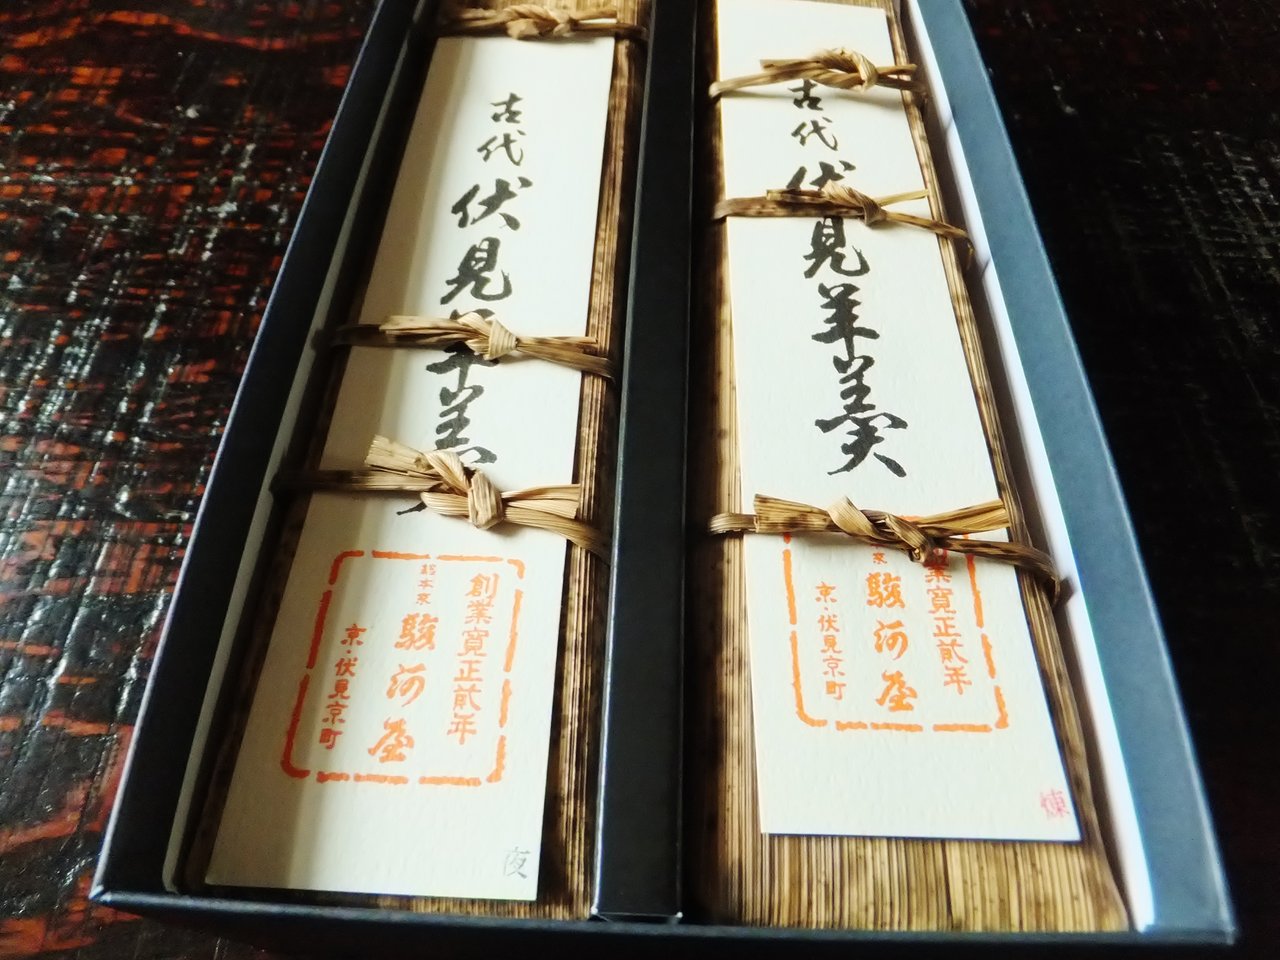 古代伏見羊羹
創業寛正貮年
総本家 駿河屋
京・伏見京町
夜
古代伏見羊羹
業寛正貮年
家 駿河屋
京・伏見京町
煉